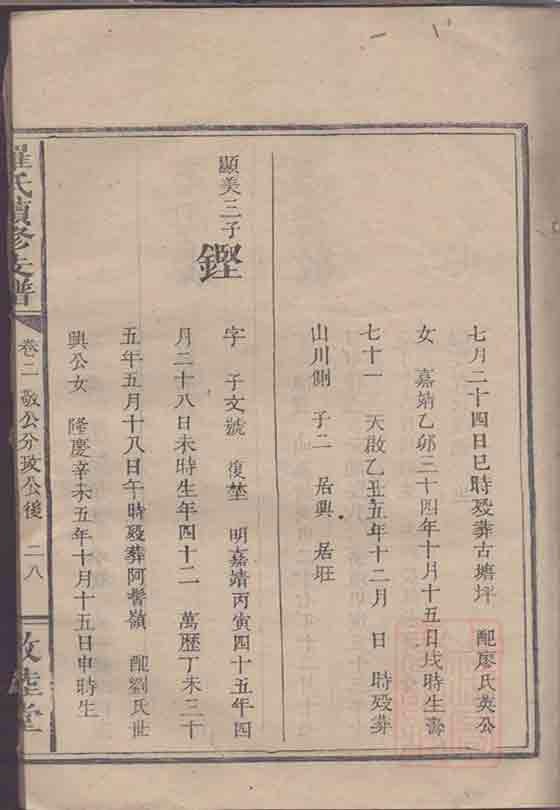 七月二十四日巳時歿葬古塘坪 配廖氏英公
女 嘉靖乙卯三十四年十月十五日戌時生壽
七十一 天啟乙丑五年十二月 日 時歿葬
山川側 子二 居興 居旺
顯美三子
鏗
字 子文號 復 明嘉靖丙寅四十五年四
月二十八日未時生年四十二 萬歷丁未三十
五年五月十八日午時歿葬阿髻嶺 配劉氏世
興公女 隆慶辛未五年十月十五日申時生
羅氏續修支譜
卷二 敬公分政公後 二八
敦睦堂